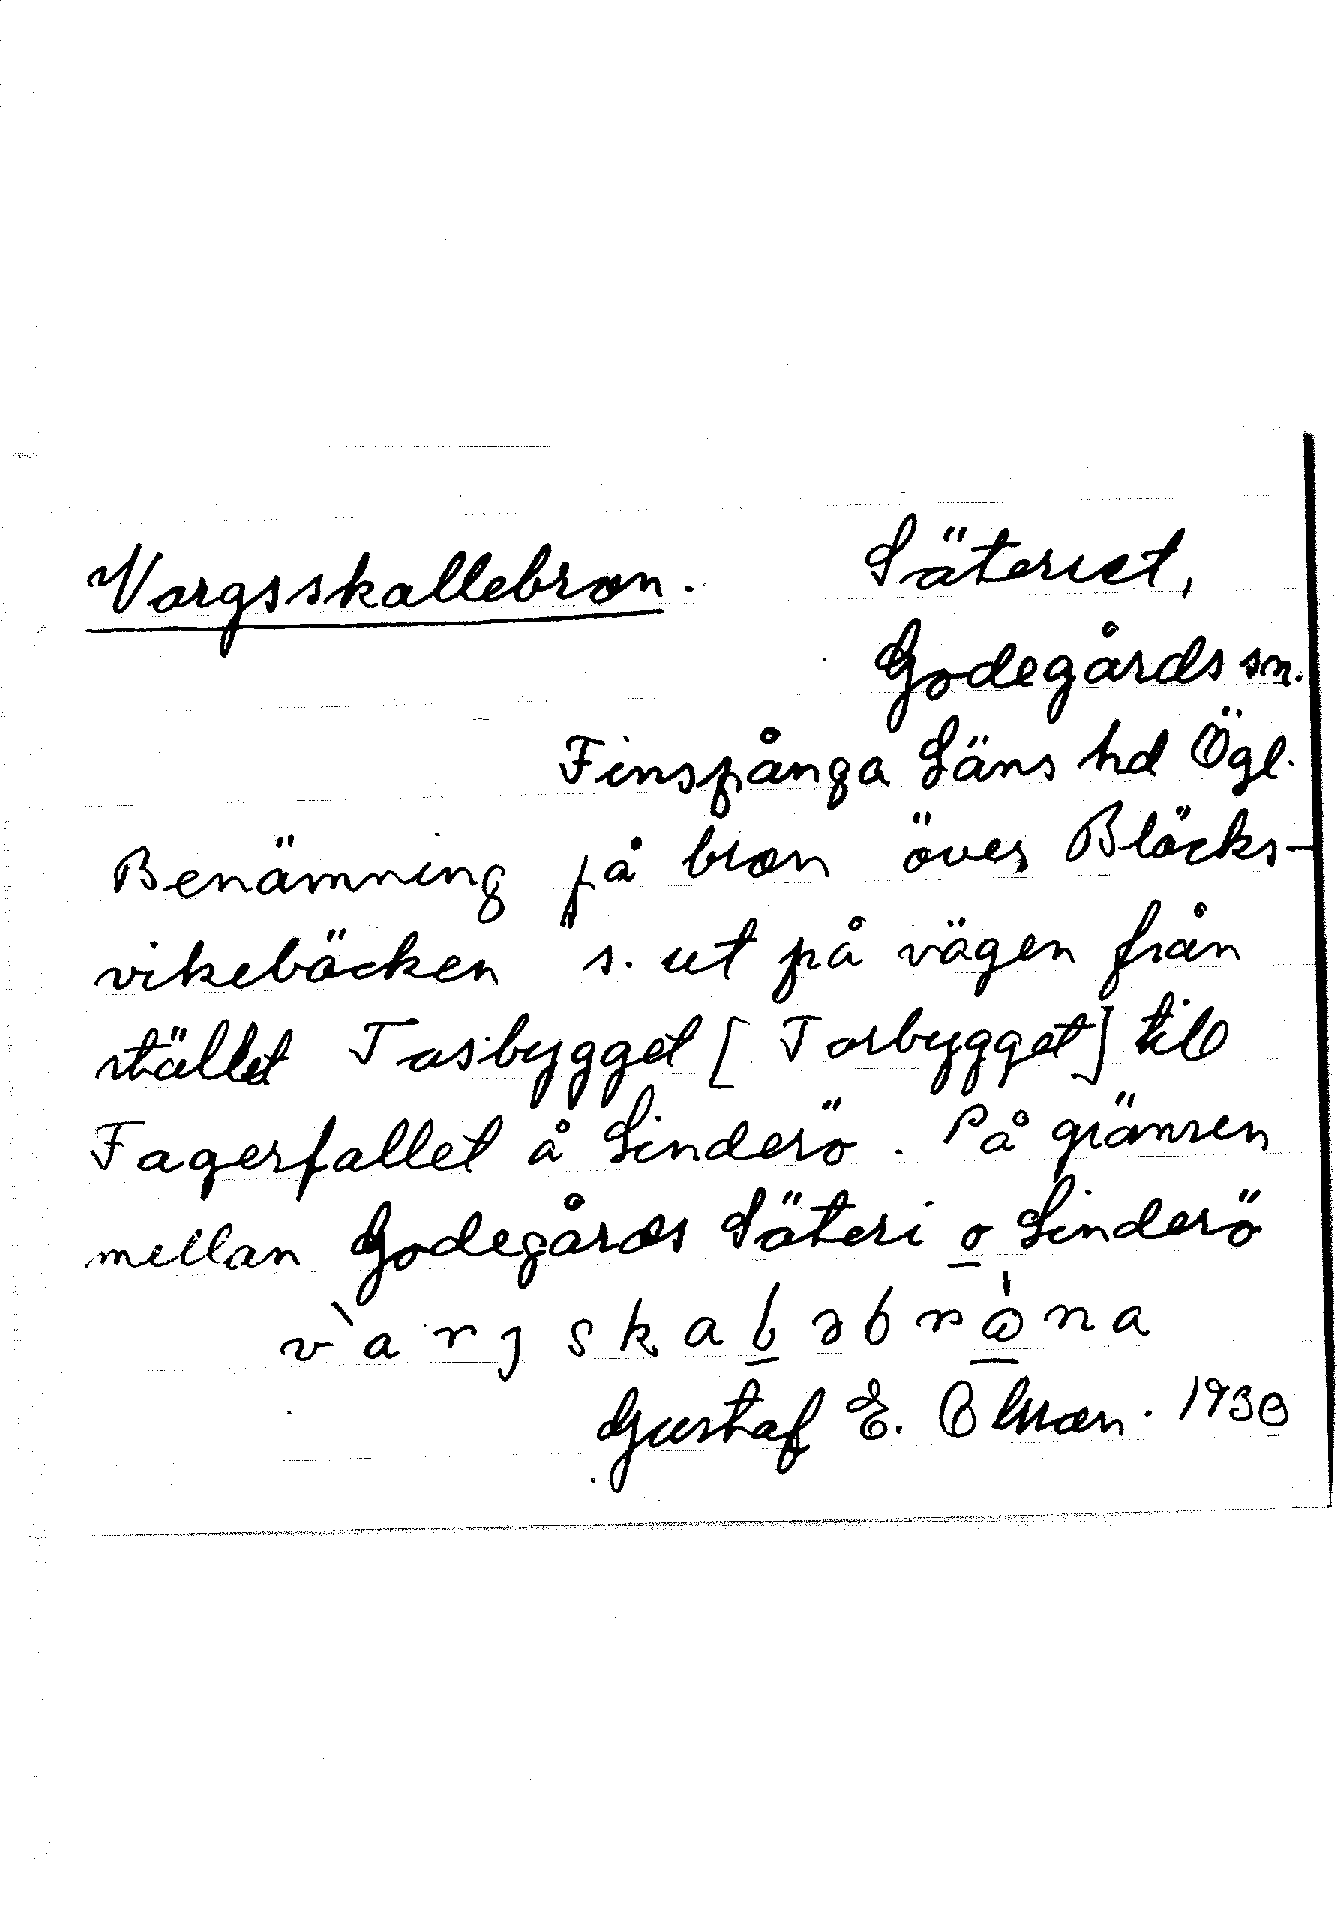 Vargsskallebron. Säteriet,
Godegårds sn.
Finspånga Läns hd Ögl.
Benämning på bron över Bläcks-
vikebäcken s. ut på vägen från
stället Tasbygget [Torbygget] till
Fagerfallet å Linderö. På gränsen
mellan Godegårds Säteri o Linderö
Gustaf E. Olsson. 1930